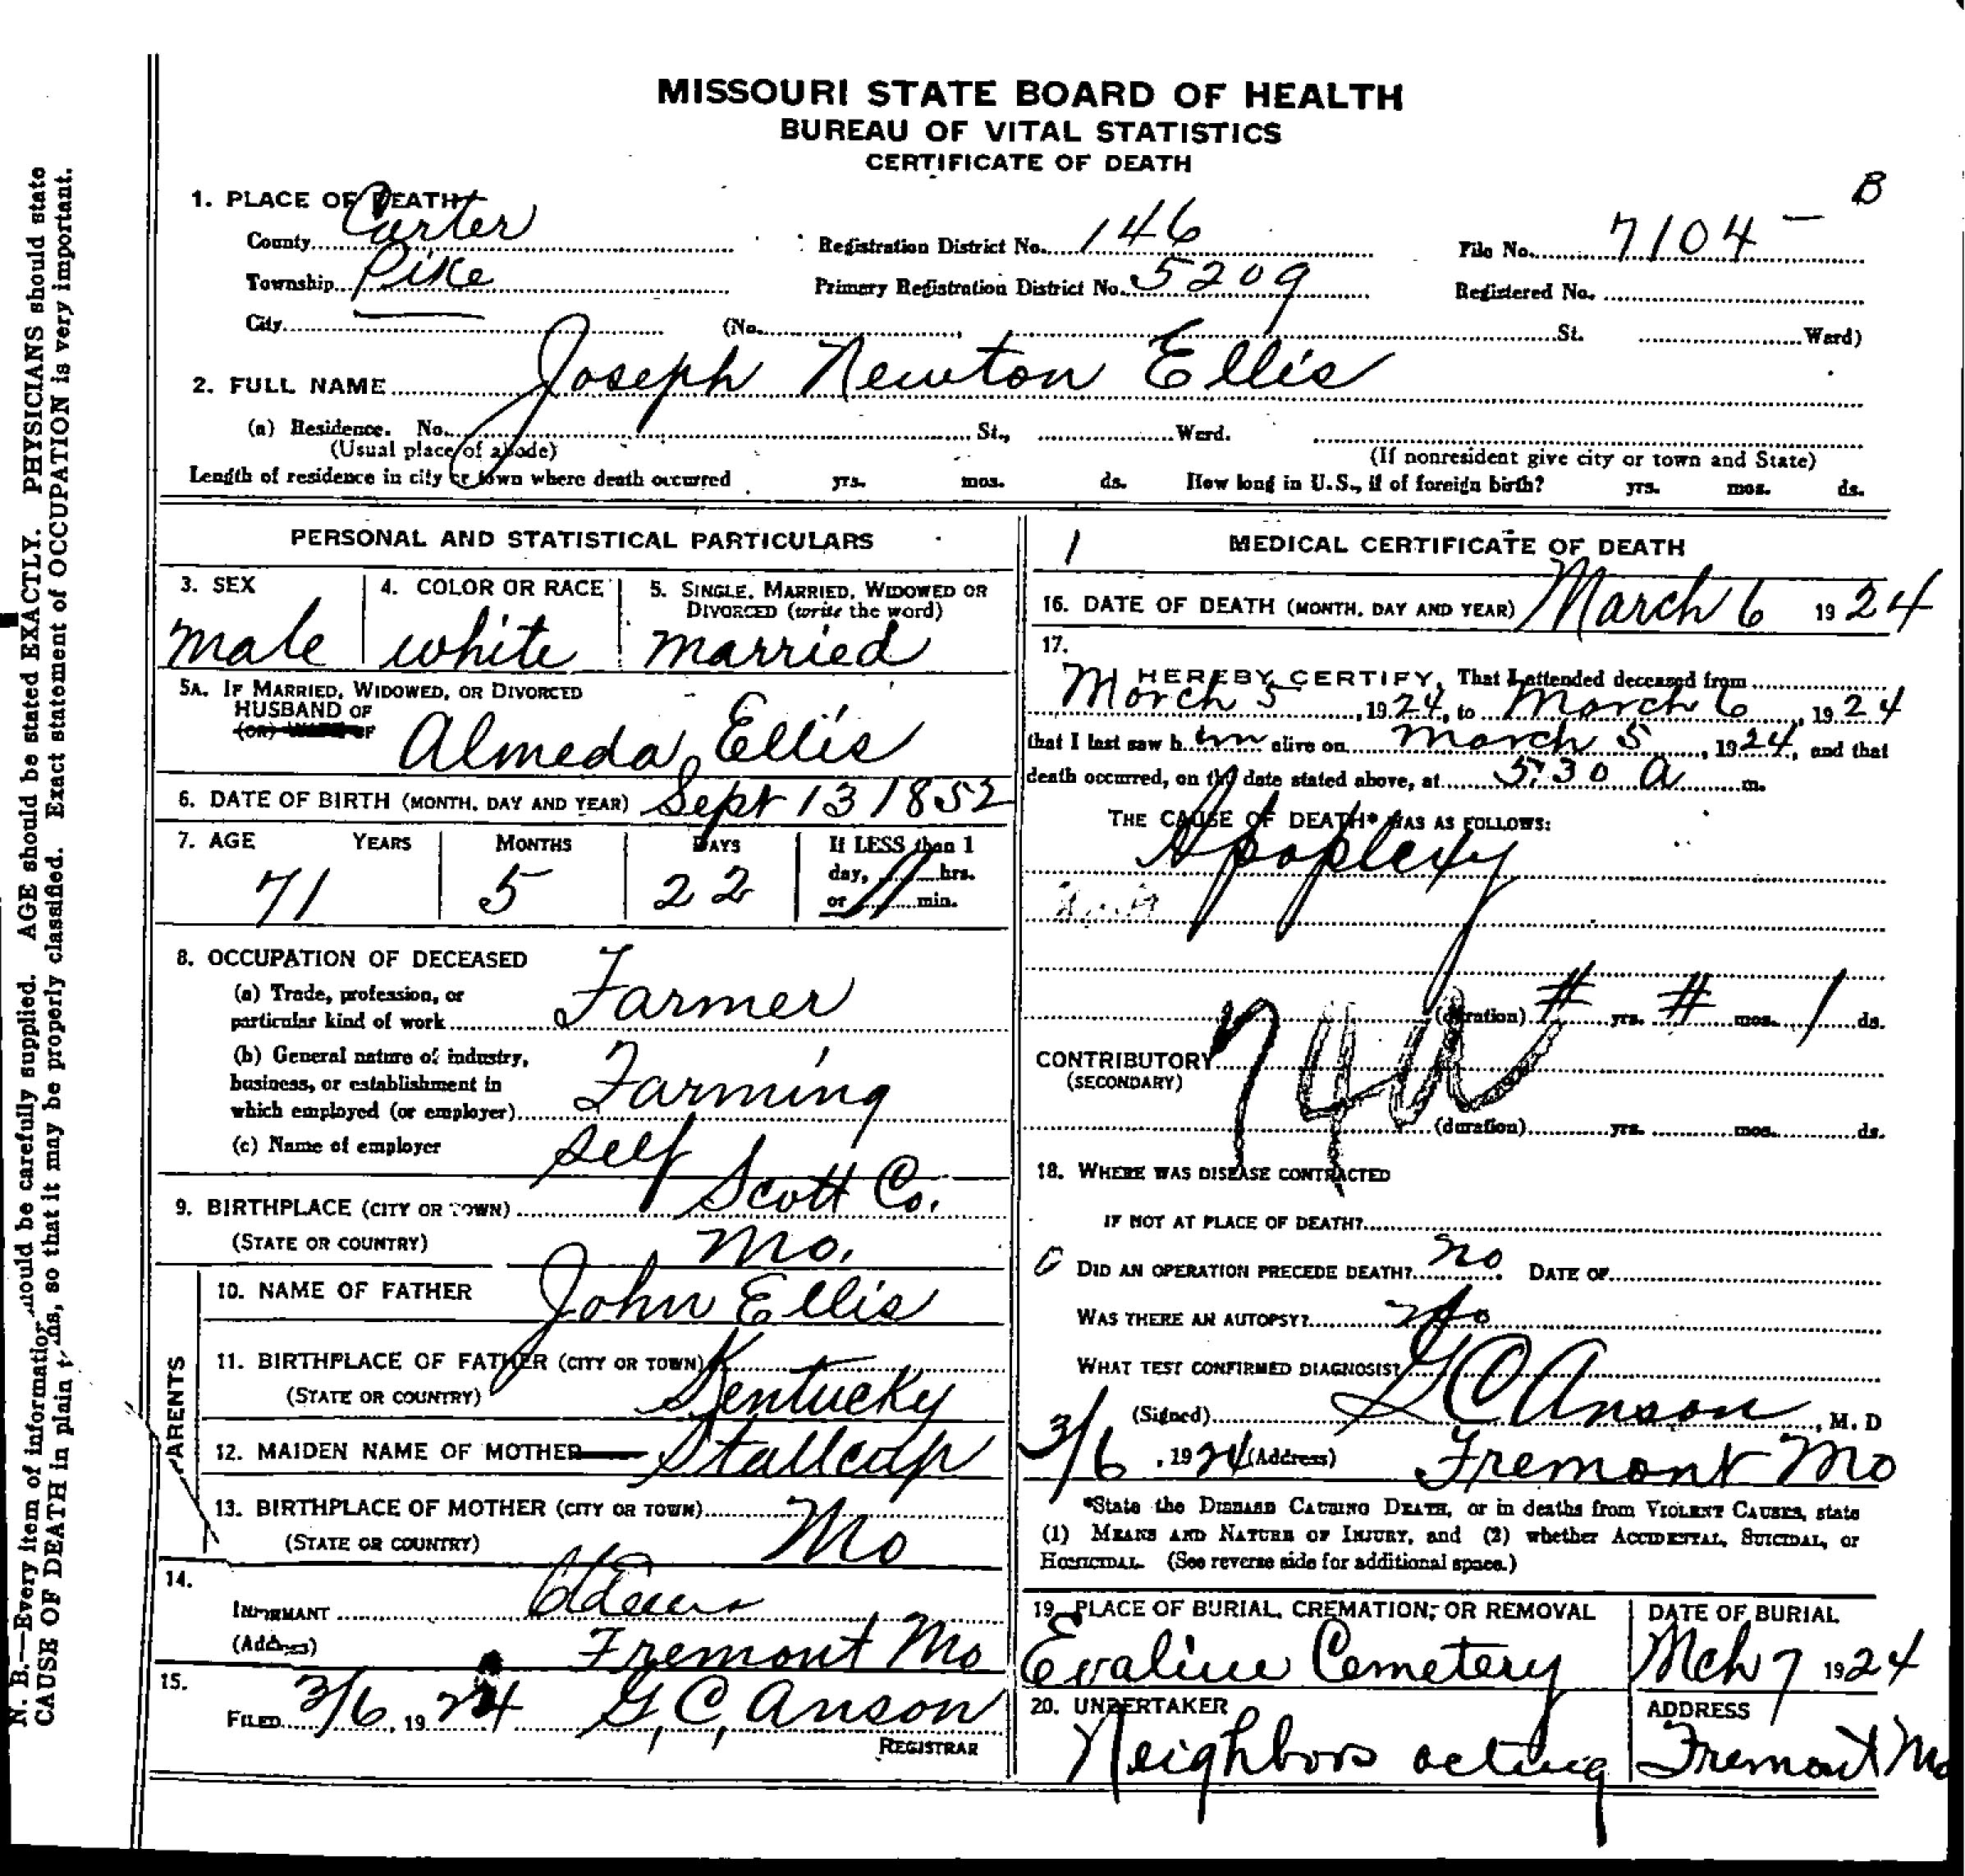 MISSOURI STATE BOARD OF HEALTH
BUREAU OF VITAL STATISTICS
CERTIFICATE OF DEATH
B
1. PLACE OF DEATH
County Carter Registration District No. 146 File No. 7104 -
Township Pike Primary Registration District No. 5209 Registered No.
City (No. , St. Ward)
2. FULL NAME Joseph Newton Ellis
(a) Residence. No. St., Ward.
(Usual place of abode) (If nonresident give city or town and State)
Length of residence in city or town where death occurred yrs. mos. ds. How long in U.S., if of foreign birth? yrs. mos. ds.
PERSONAL AND STATISTICAL PARTICULARS
3. SEX 4. COLOR OR RACE 5. SINGLE, MARRIED, WIDOWED OR
DIVORCED (write the word)
male white married
5A. IF MARRIED, WIDOWED, OR DIVORCED
HUSBAND OF
(OR) WIFE OF
Almeda Ellis
6. DATE OF BIRTH (MONTH, DAY AND YEAR) Sept 13 1852
7. AGE YEARS MONTHS DAYS If LESS than 1
day, hrs.
71 5 22 or min.
8. OCCUPATION OF DECEASED
(a) Trade, profession, or
particular kind of work Farmer
(b) General nature of industry,
business, or establishment in
which employed (or employer) Farming
(c) Name of employer self
9. BIRTHPLACE (CITY OR TOWN) Scott Co.
(STATE OR COUNTRY) Mo.
PARENTS
10. NAME OF FATHER John Ellis
11. BIRTHPLACE OF FATHER (CITY OR TOWN)
(STATE OR COUNTRY) Kentucky
12. MAIDEN NAME OF MOTHER Stallcup
13. BIRTHPLACE OF MOTHER (CITY OR TOWN)
(STATE OR COUNTRY) Mo
14.
INFORMANT
(Address) Fremont Mo
15.
FILED 3/6, 1924 G, C, Anson
REGISTRAR
1 MEDICAL CERTIFICATE OF DEATH
16. DATE OF DEATH (MONTH, DAY AND YEAR) March 6 1924
17.
I HEREBY CERTIFY, That I attended deceased from
March 5, 1924, to March 6, 1924
that I last saw him alive on March 5, 1924, and that
death occurred, on the date stated above, at 5:30 a m.
THE CAUSE OF DEATH* WAS AS FOLLOWS:
Apoplexy
(duration) # yrs. # mos. 1 ds.
CONTRIBUTORY
(SECONDARY)
74a
(duration) yrs. mos. ds.
18. WHERE WAS DISEASE CONTRACTED
IF NOT AT PLACE OF DEATH?
DID AN OPERATION PRECEDE DEATH? no DATE OF
WAS THERE AN AUTOPSY? no
WHAT TEST CONFIRMED DIAGNOSIS?
(Signed) G C Anson, M. D
3/6, 1924 (Address) Fremont Mo
*State the DISEASE CAUSING DEATH, or in deaths from VIOLENT CAUSES, state
(1) MEANS AND NATURE OF INJURY, and (2) whether ACCIDENTAL, SUICIDAL, or
HOMICIDAL. (See reverse side for additional space.)
19. PLACE OF BURIAL, CREMATION, OR REMOVAL DATE OF BURIAL
Evaline Cemetery Mch 7 1924
20. UNDERTAKER ADDRESS
Neighbors acting Fremont Mo
N. B.—Every item of information should be carefully supplied. AGE should be stated EXACTLY. PHYSICIANS should state
CAUSE OF DEATH in plain terms, so that it may be properly classified. Exact statement of OCCUPATION is very important.